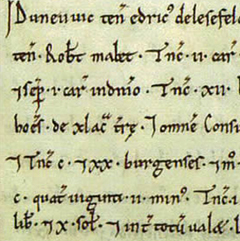 Duneuuic ten̄ edric' de lesefel
ten̄. Rob̄t malet. Tn̄c. ii. car̄
⁊ sēp. i. car̄ in dn̄io. Tn̄c. xii.
bocs̄. de xl ac̄ t̄re. ⁊ omnē Consu
⁊ Tn̄c c. ⁊ xx. burgenses. ⁊ m̄.
c. quat̄ uiginti. ii. min'. Tn̄c. i
lib̄. ⁊ x. sol̄. ⁊ int̄ totū ualæ.